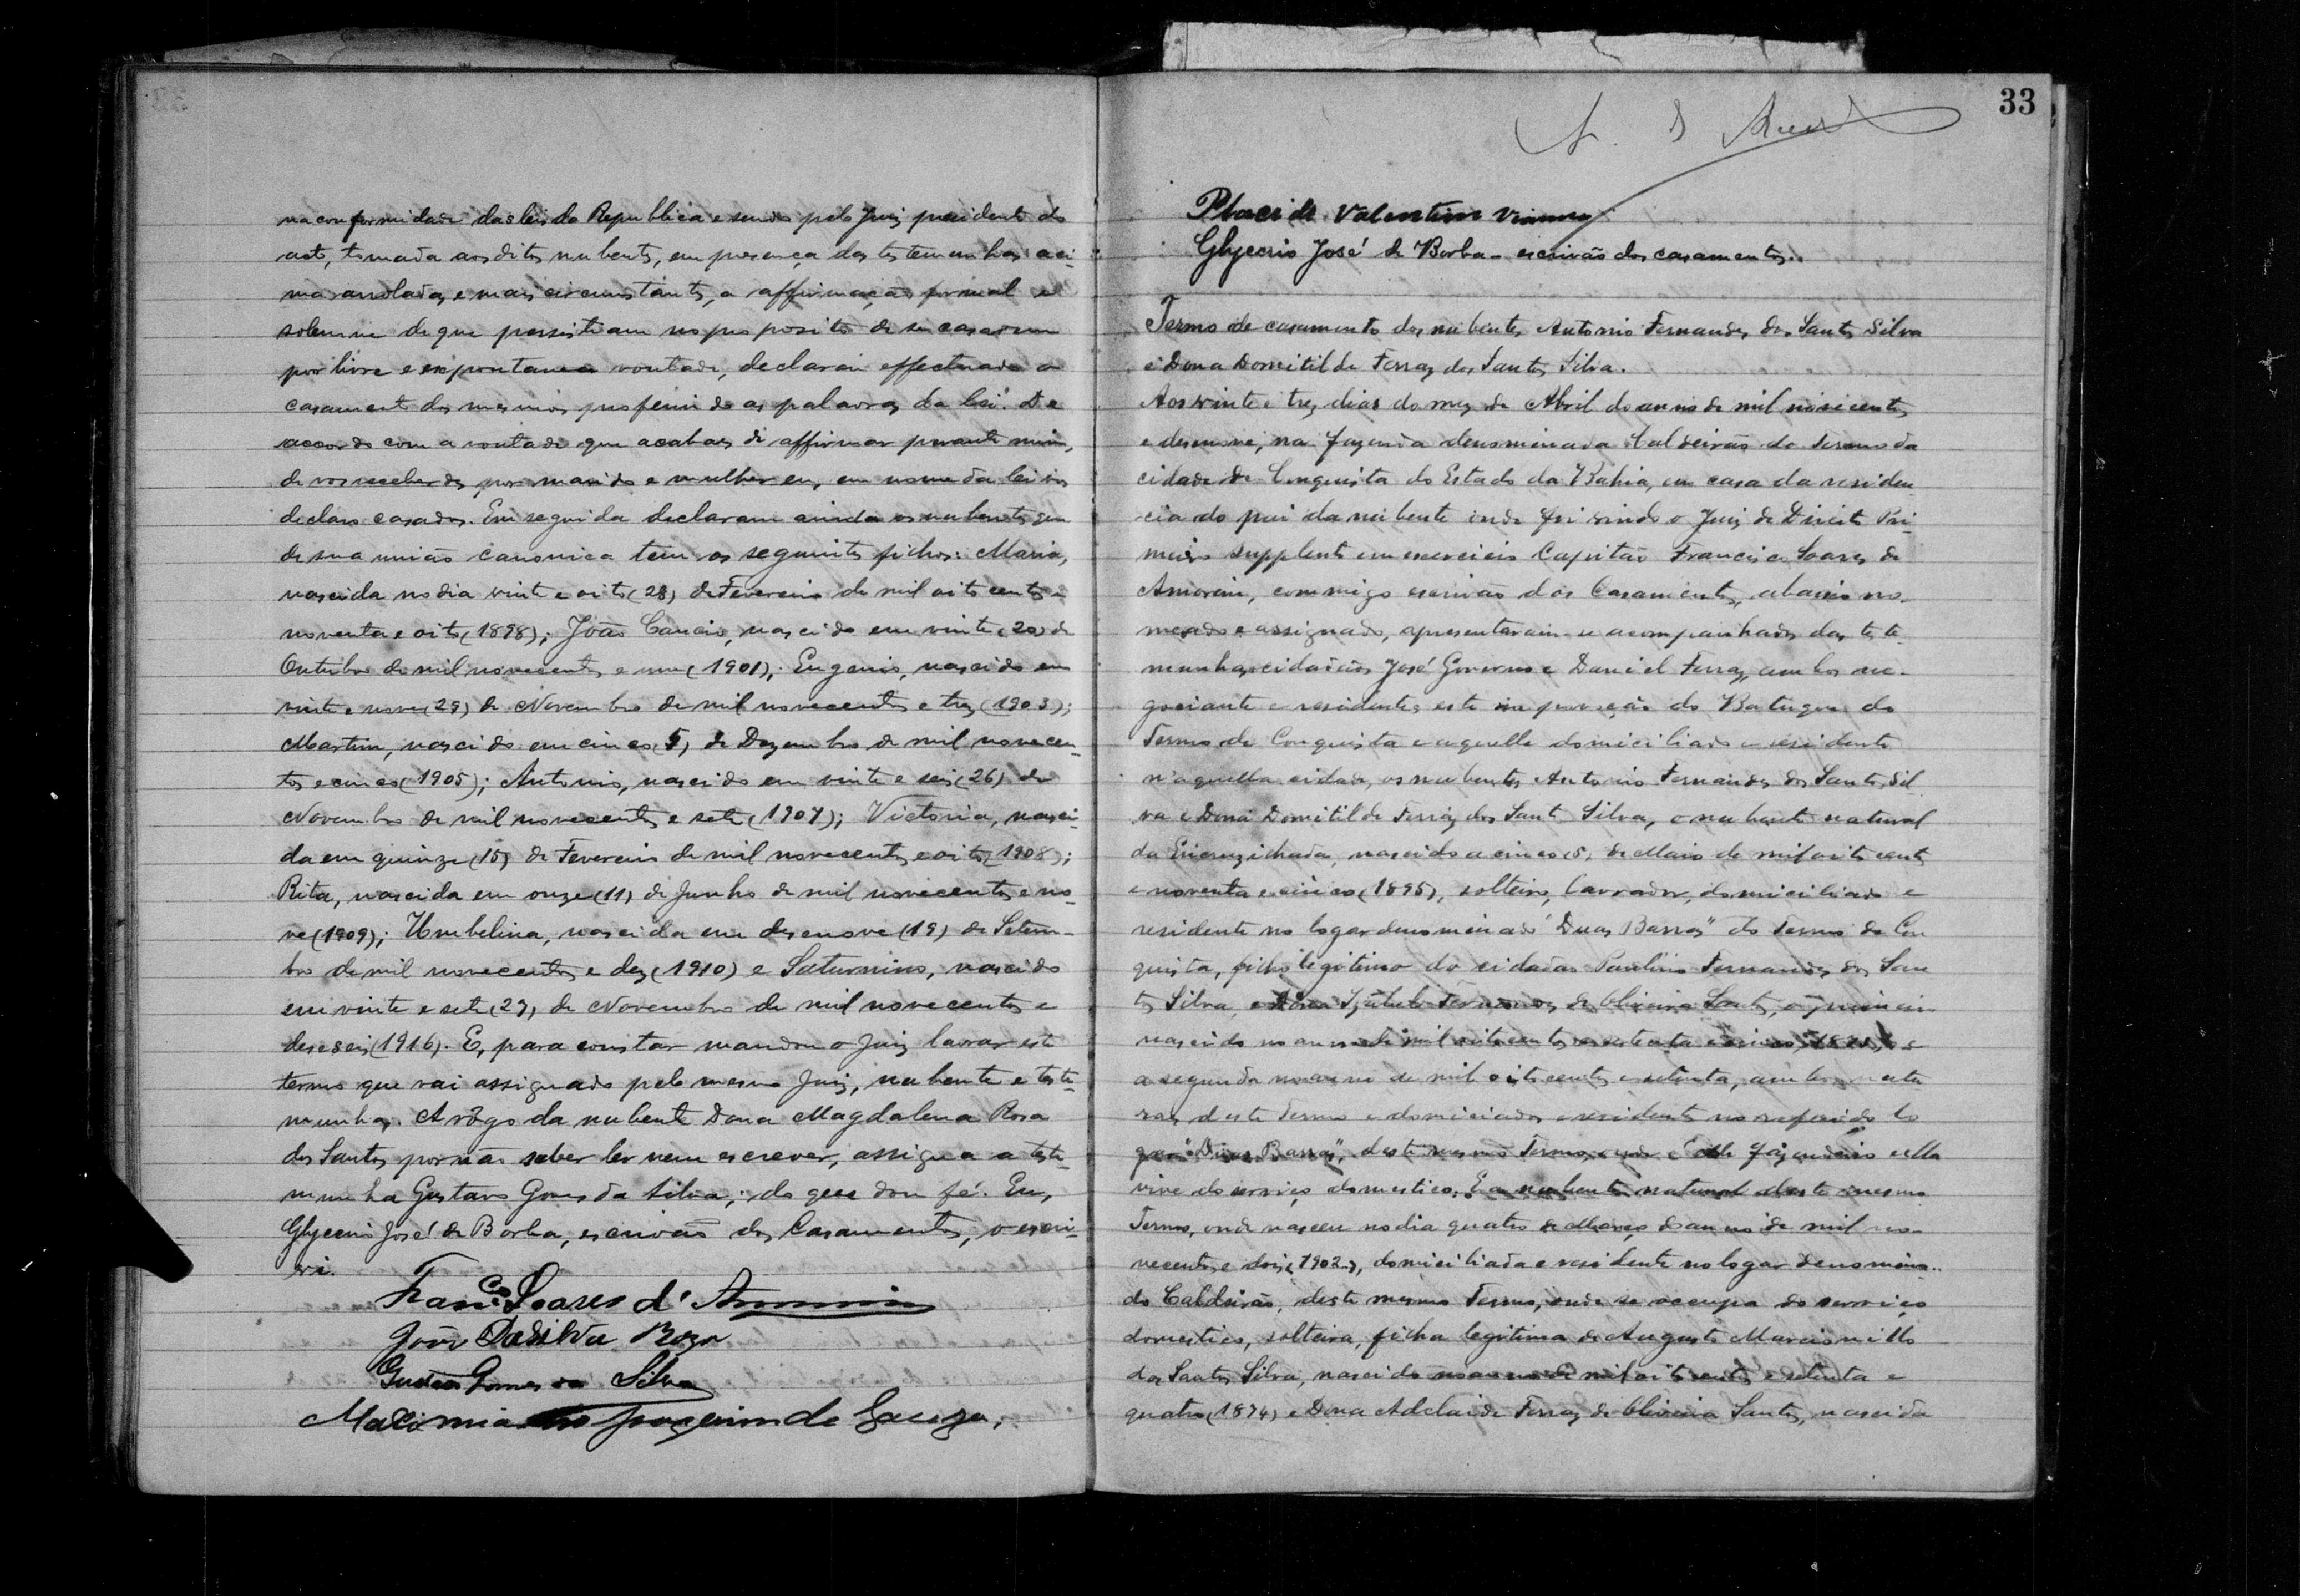 na conformidade das leis da Republica e sendo pelo Juiz presidente do
acto, tomada aos ditos nubentes, em presença das testemunhas aci-
ma arroladas, e mais circunstantes, a affirmação formal e
solemne de que persistiam no proposito de se casarem
por livre e expontanea vontade, declarou effectuado o
casamento dos mesmos, proferindo as palavras da lei: De
accordo com a vontade que acabaes de affirmar perante mim,
de vos receberdes por marido e mulher eu, em nome da lei vos
declaro casados. Em seguida declararam ainda os nubentes que
de sua união canonica tem os seguintes filhos: Maria,
nascida no dia vinte e oito (28) de Fevereiro de mil oitocentos e
noventa e oito (1898); João Cancio, nascido em vinte (20) de
Outubro de mil novecentos e um (1901); Eugenio, nascido em
vinte e nove (29) de Novembro de mil novecentos e tres (1903);
Martim, nascido em cinco (5) de Dezembro de mil novecen-
tos e cinco (1905); Antonio, nascido em vinte e seis (26) de
Novembro de mil novecentos e sete (1907); Victoria, nasci-
da em quinze (15) de Fevereiro de mil novecentos e oito (1908);
Rita, nascida em onze (11) de Junho de mil novecentos e no-
ve (1909); Umbelina, nascida em desenove (19) de Setem-
bro de mil novecentos e dez (1910) e Saturnino, nascido
em vinte e sete (27) de Novembro de mil novecentos e
deseseis (1916). E, para constar mandou o Juiz lavrar este
termo que vai assignado pelo mesmo Juiz, nubente e teste-
munhas. A rôgo da nubente Dona Magdalena Rosa
dos Santos por não saber ler nem escrever, assigna a teste-
munha Gustavo Gomes da Silva; do que dou fé. Eu,
Glycerio José de Borba, escrivão dos Casamentos, o escre-
vi.
Franco. Soares d'Amorim
João Dasilva Roza
Gustavo Gomes da Silva
Maximiano Joaquim de Souza,
33
Placido Valentim Vianna
Glycerio José de Borba - escrivão dos casamentos.
Termo de casamento dos nubentes Antonio Fernandes dos Santos Silva
e Dona Domitilde Ferraz dos Santos Silva.
Aos vinte e tres dias do mez de Abril do anno de mil novecentos
e desenove, na fazenda denominada Caldeirão do Termo da
cidade de Conquista do Estado da Bahia, em casa da residen-
cia do pai da nubente onde foi vindo o Juiz de Direito Pri-
meiro supplente em exercicio Capitão Francisco Soares de
Amorim, commigo escrivão dos Casamentos, abaixo no-
meado e assignado, apresentaram-se acompanhados das teste-
munhas cidadãos José Governo e Daniel Ferraz, ambos ne-
gociante e residentes, este na povoação do Batuque do
Termo de Conquista e aquelle domiciliado e residente
n'aquella cidade, os nubentes Antonio Fernandes dos Santos Sil
va e Dona Domitilde Ferraz dos Santos Silva, o nubente natural
da Encruzilhada, nascido a cinco (5) de Maio de mil oitocentos
e noventa e cinco (1895), solteiro, lavrador, domiciliado e
residente no logar denominado "Duas Barras" do Termo de Con
quista, filho legitimo do cidadão Paulino Fernandes dos San
tos Silva, e Dona Fernandes de Oliveira Santos, o primeiro
nascido no anno de mil oitocentos e
a segunda no anno de mil oitocentos e setenta, ambos natu
raes deste Termo e domiciados e residentes no referido lo
gar "Duas Barras", deste mesmo Termo, onde Elle fazendeiro e ella
vive do serviço domestico. E a nubente natural deste mesmo
Termo, onde nasceu no dia quatro de Março do anno de mil no-
vecentos e dois (1902), domiciliada e residente no logar denomina-
do Caldeirão, deste mesmo Termo, onde se occupa do serviço
domestico, solteira, filha legitima de Augusto Marcionillo
dos Santos Silva, nascido no anno de mil oitocentos e setenta e
quatro (1874) e Dona Adelaide Ferraz de Oliveira Santos, nascida